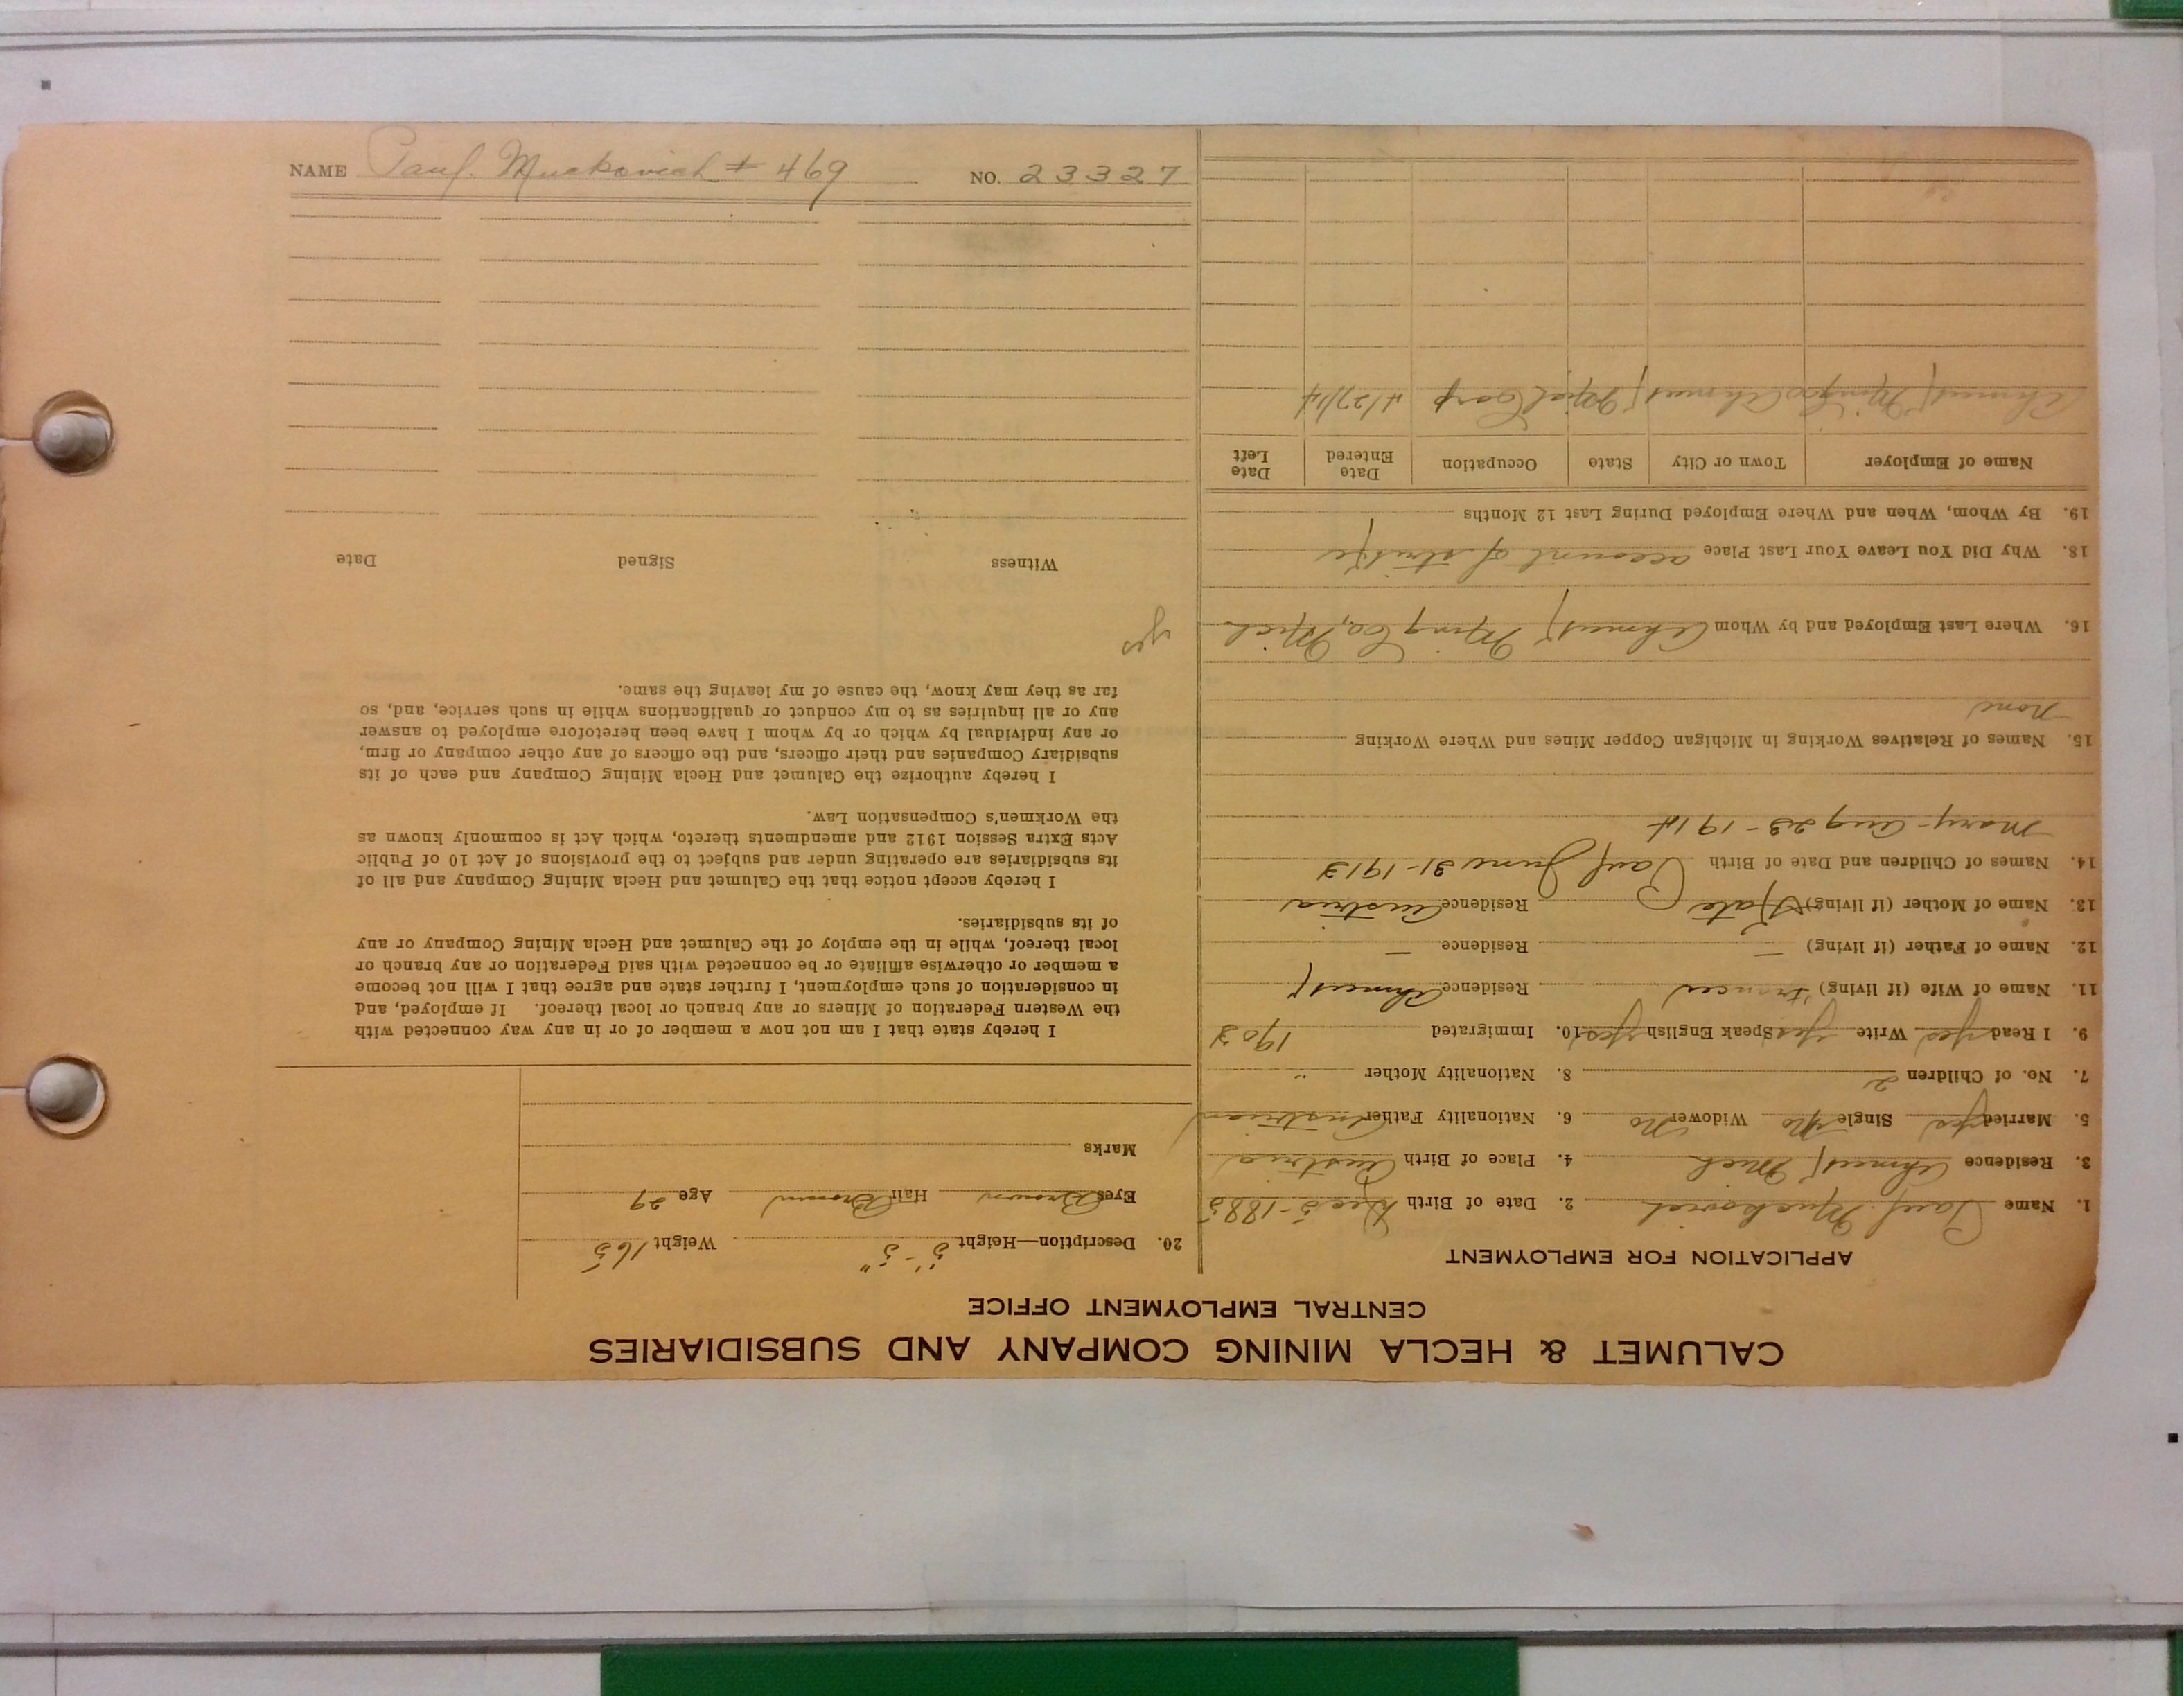 NAME Paul. Muckovich # 469 NO. 23327
CALUMET & HECLA MINING COMPANY AND SUBSIDIARIES
CENTRAL EMPLOYMENT OFFICE
APPLICATION FOR EMPLOYMENT
1. Name Paul. Muckovich 2. Date of Birth Dec 5-1885
3. Residence Ahmeek Mich 4. Place of Birth Austria
5. Married yes Single No Widower No 6. Nationality Father Austrian
7. No. of Children 2 8. Nationality Mother "
9. I Read yes Write yes Speak English yes 10. Immigrated 1903
11. Name of Wife (if living) Frances Residence Ahmeek
12. Name of Father (if living) — Residence —
13. Name of Mother (if living) Kate Residence Austria
14. Names of Children and Date of Birth Paul June 31-1913
Mary- Aug 23-1914
15. Names of Relatives Working in Michigan Copper Mines and Where Working
none
16. Where Last Employed and by Whom Ahmeek Ming Co, Mich
18. Why Did You Leave Your Last Place account of strike
19. By Whom, When and Where Employed During Last 12 Months
Name of Employer Town or City State Occupation Date Entered Date Left
Ahmeek Ming Co Ahmeek Mich 4/27/14
20. Description—Height 5'-5" Weight 165
Eyes Brown Hair Brown Age 29
Marks
I hereby state that I am not now a member of or in any way connected with
the Western Federation of Miners or any branch or local thereof. If employed, and
in consideration of such employment, I further state and agree that I will not become
a member or otherwise affiliate or be connected with said Federation or any branch or
local thereof, while in the employ of the Calumet and Hecla Mining Company or any
of its subsidiaries.
I hereby accept notice that the Calumet and Hecla Mining Company and all of
its subsidiaries are operating under and subject to the provisions of Act 10 of Public
Acts Extra Session 1912 and amendments thereto, which Act is commonly known as
the Workmen's Compensation Law.
I hereby authorize the Calumet and Hecla Mining Company and each of its
subsidiary Companies and their officers, and the officers of any other company or firm,
or any individual by which or by whom I have been heretofore employed to answer
any or all inquiries as to my conduct or qualifications while in such service, and, so
far as they may know, the cause of my leaving the same.
yes
Witness Signed Date